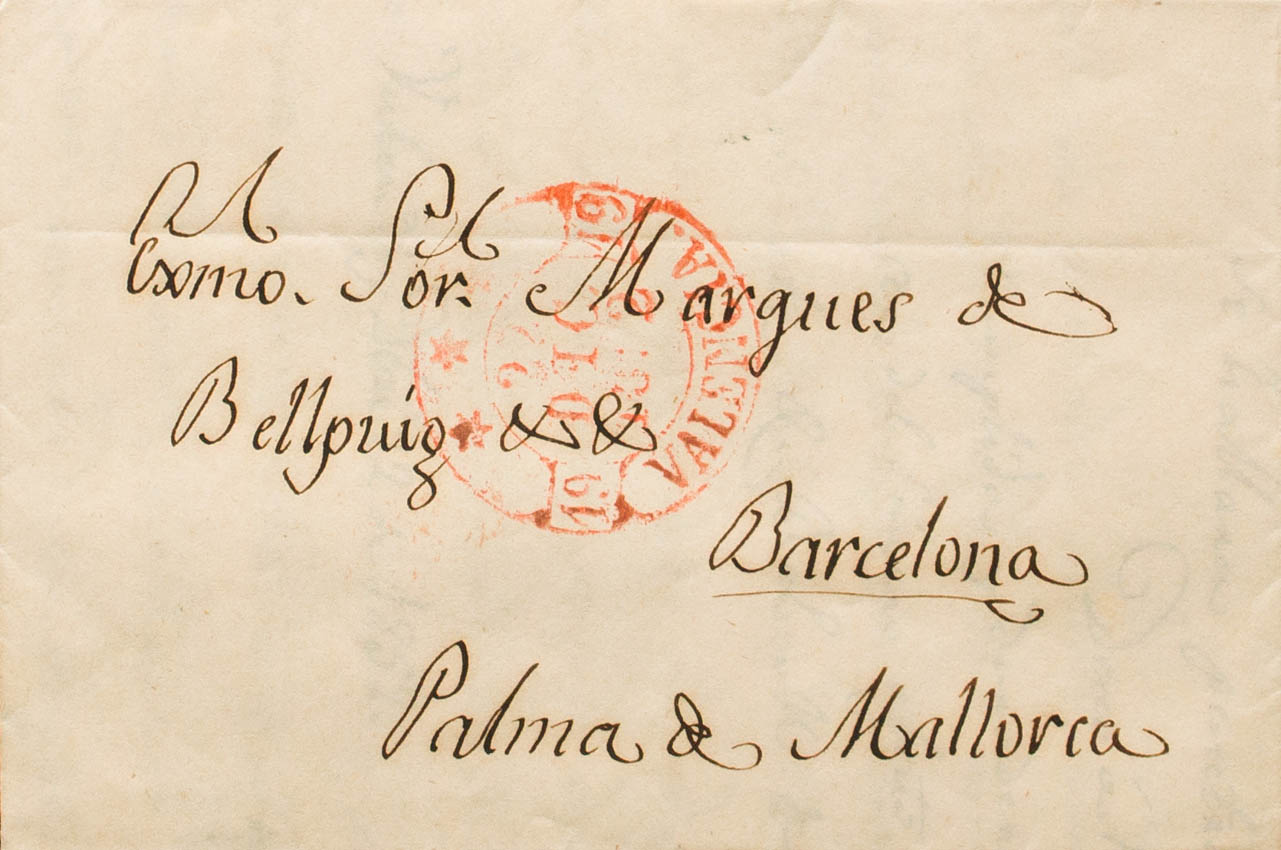 Al
Exmo. Sor. Marques de
Bellpuig & &
Barcelona
Palma de Mallorca
VALENCIA.
19
22
DIC
19